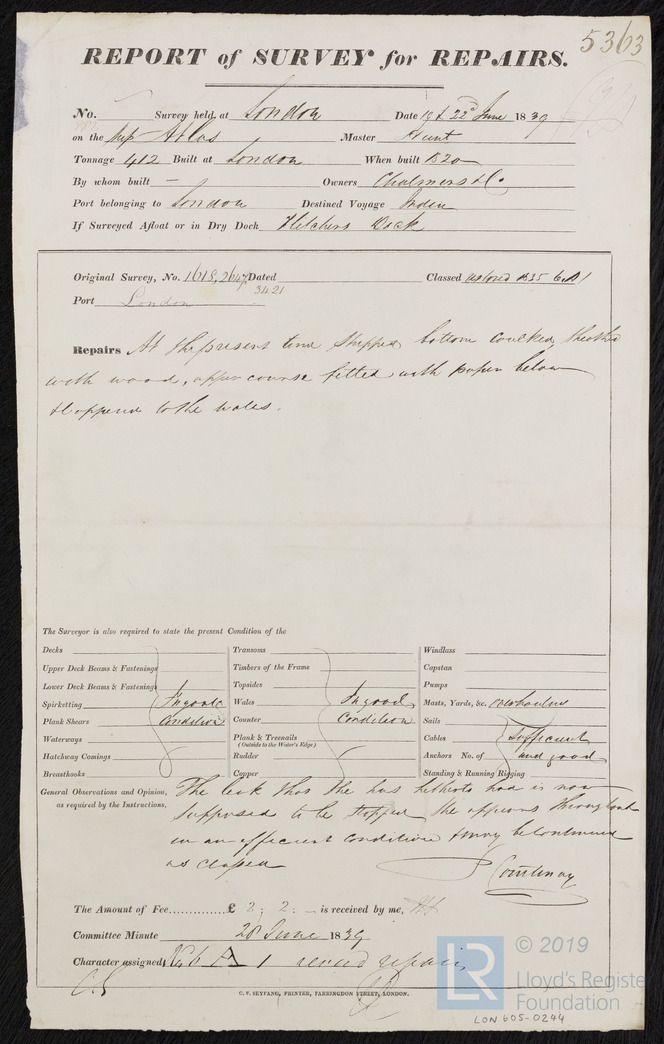 5363
REPORT of SURVEY for REPAIRS.
No. Survey held at London Date 19 & 22d June 1839
on the Ship Atlas Master Hunt
Tonnage 412 Built at London When built 1820
By whom built — Owners Chalmers & Co
Port belonging to London Destined Voyage India
If Surveyed Afloat or in Dry Dock Fletchers Dock
Original Survey, No. 1618, 2647 Dated Classed restored 1835 6 A 1
3421
Port London
Repairs At the present time stripped, bottom caulked, sheathed
with wood, upper course felted with paper below
& coppered to the wales.
The Surveyor is also required to state the present Condition of the
Decks
Upper Deck Beams & Fastenings
Lower Deck Beams & Fastenings
Spirketting In good
Plank Shears Condition
Waterways
Hatchway Comings
Breasthooks
Transoms
Timbers of the Frame
Topsides
Wales In good
Counter Condition
Plank & Treenails
(Outside to the Water's Edge)
Rudder
Copper
Windlass
Capstan
Pumps
Masts, Yards, &c.
Sails
Cables Sufficient
Anchors No. of and good
Standing & Running Rigging
General Observations and Opinion,
as required by the Instructions.
The leak that she has hitherto had is now
supposed to be stopped she appears throughout
in an efficient condition & may be continued
as classed
P Courtenay
The Amount of Fee.............. £ 2 : 2 : — is received by me,
Committee Minute 28 June 1839
Character assigned 6 A 1 repairs
C. F. SEYFANG, PRINTER, FARRINGDON STREET, LONDON.
© 2019
LR
Lloyd's Register
Foundation
LON 605-0244